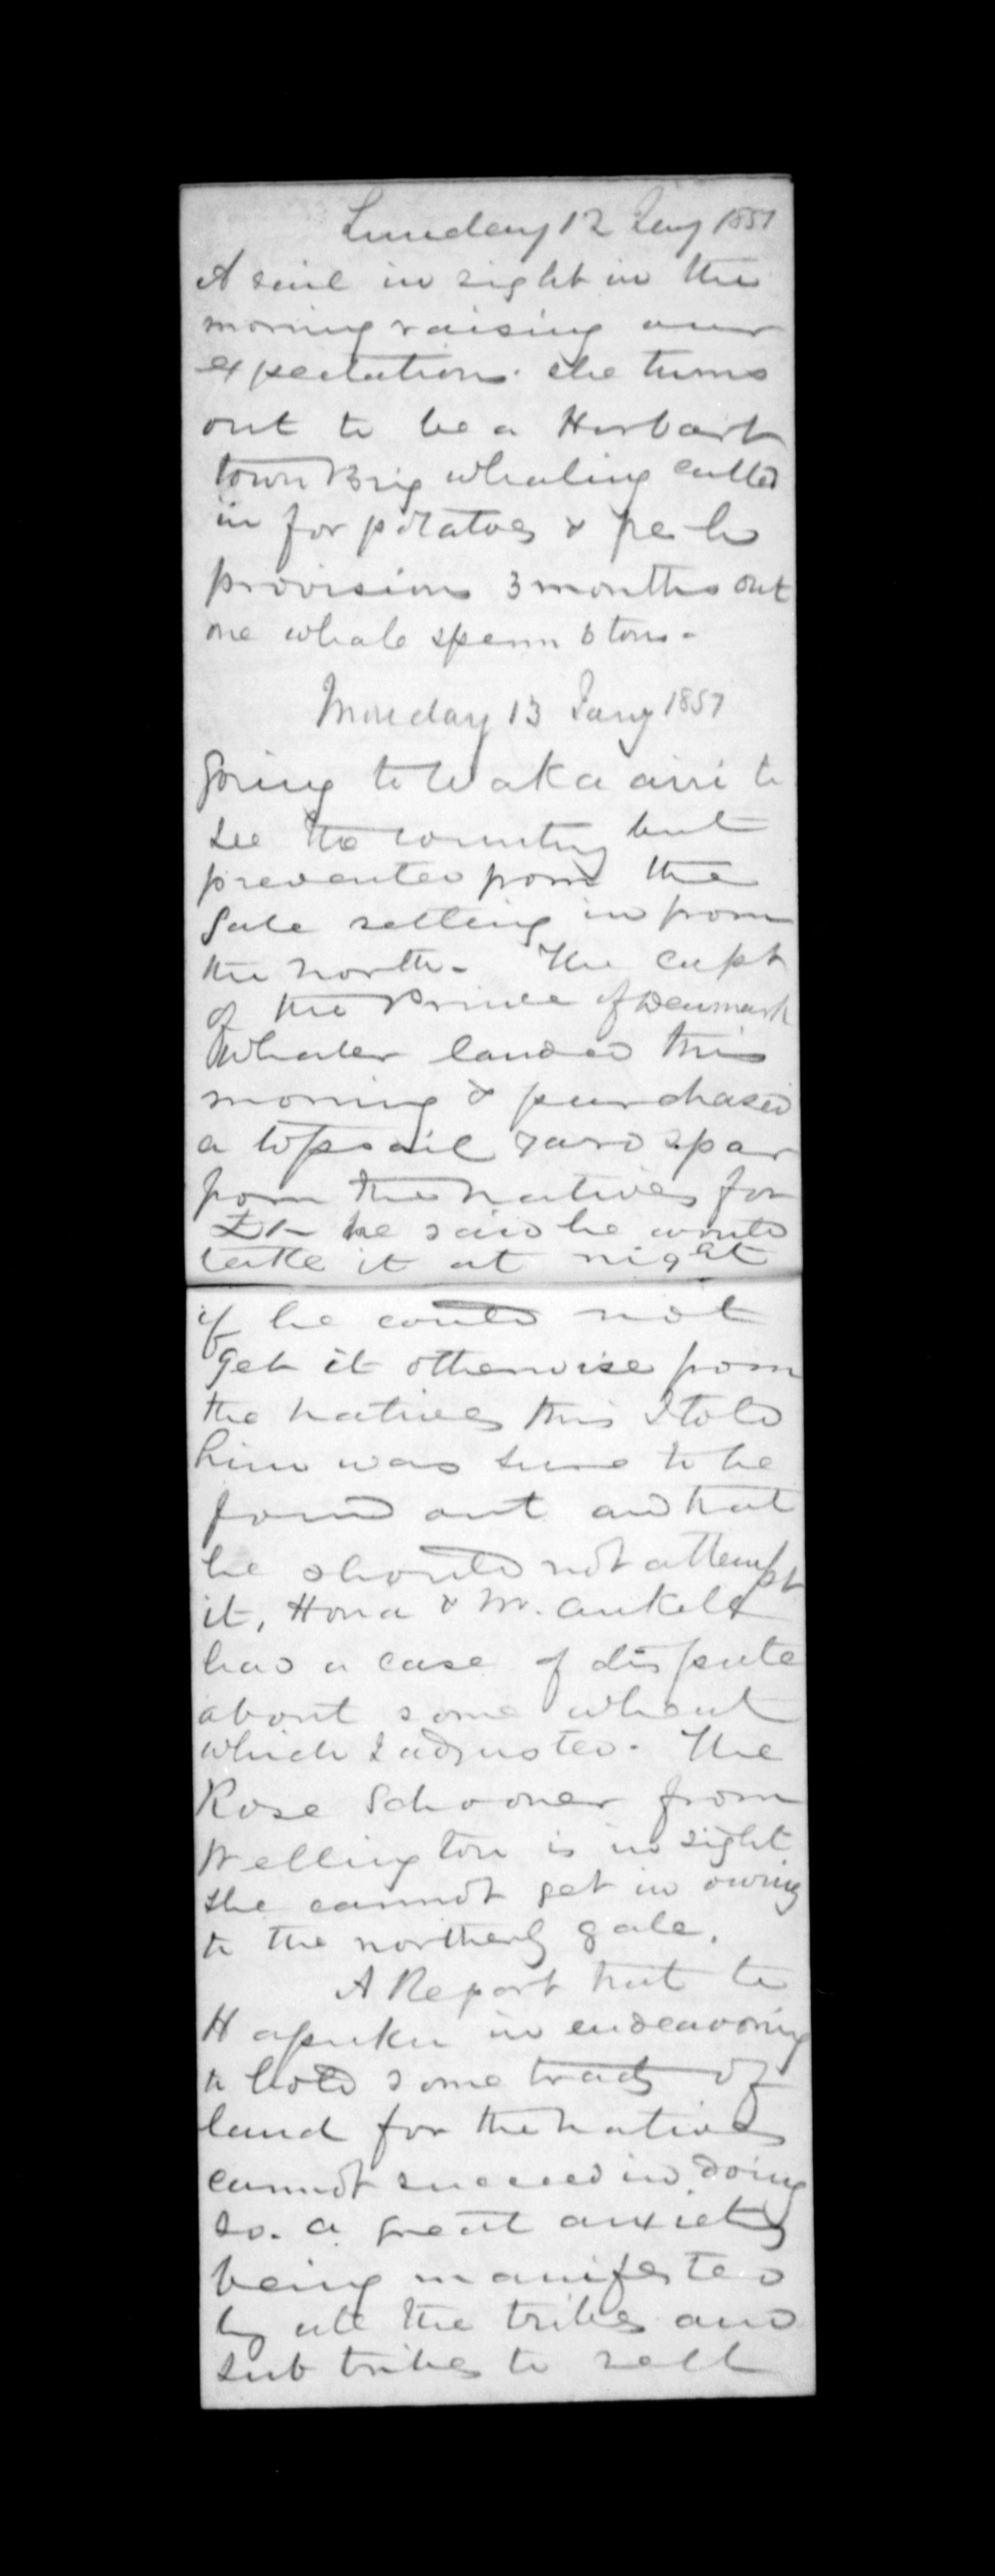 Sunday 12 Jany 1851
A sail in sight in the
morning raising our
expectations. she turns
out to be a Hobart
town Brig whaling called
in for potatoes &
provisions 3 months out
one whale sperm 6 tons -
Monday 13 Jany 1851
Going to Wakaairi to
see the country but
prevented from the
Gale setting in from
the north - The capt
of the Prince of Denmark
Whaler landed this
morning & purchased
a topsail yard spar
from the natives for
£1/- he said he would
take it at night
if he could not
get it otherwise from
the natives this I told
him was sure to be
found out and that
he should not attempt
it, Hona & Mr.
had a case of dispute
about some wheat
which I adjusted. The
Rose Schooner from
Wellington is in sight
she cannot get in owing
to the northerly gale.
A Report that te
Hapuku in endeavoring
to hold some tracts of
land for the natives
cannot succeed in doing
so. a great anxiety
being manifested
by all the tribes and
sub tribes to sell